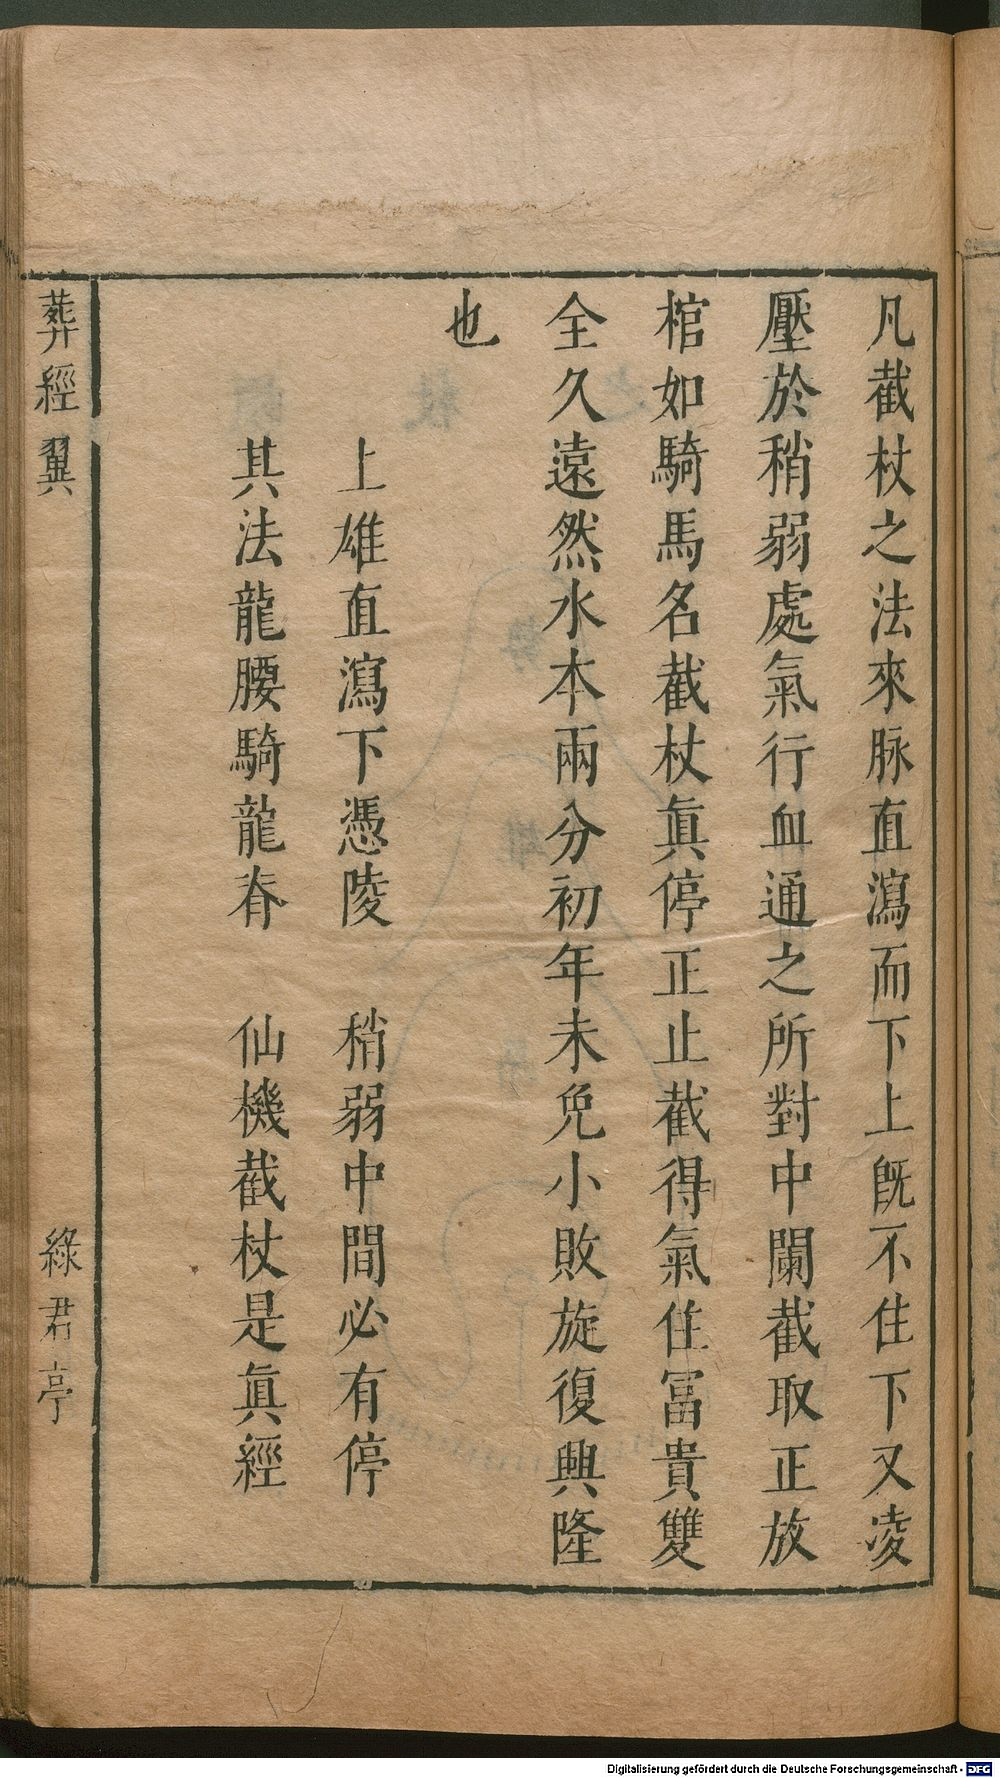 凡截杖之法來脉直瀉而下上旣不住下又凌
壓於稍弱處氣行血通之所對中闌截取正放
棺如騎馬名截杖眞停正止截得氣住富貴雙
全久遠然水本兩分初年未免小敗旋復興隆
也
上雄直瀉下憑陵　稍弱中間必有停
其法龍腰騎龍脊　仙機截杖是眞經
葬經翼　綠君亭
Digitalisierung gefördert durch die Deutsche Forschungsgemeinschaft - DFG